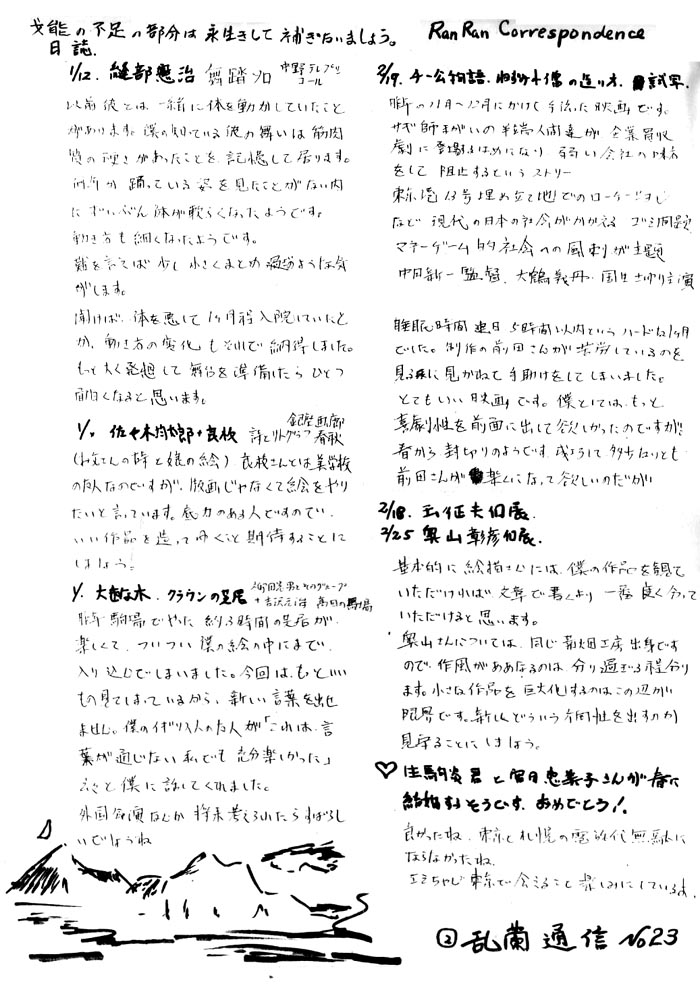 才能の不足の部分は永生きして補ぎないましょう。
Ran Ran Correspondence
日誌.
1/12. 縫部憲治 舞踏ソロ 中野テレプシコール
以前彼とは一緒に体を動かしていたこと
があります。僕の知っている彼の舞いは筋肉
質の硬さがあったことを記憶して居ります。
何年か踊っている姿を見たことがない内
にずいぶん体が軟らくなったようです。
動き方も細くなったようです。
難を言えば少し小さくまとめ過ぎような気
がします。
聞けば、体を悪して1ヶ月程入院していたと
か、動き方の変化もそれで納得しました。
もっと大く発想して舞台を準備したらひとつ
面白くなると思います。
佐々木 良枝 詩とリトグラフ 銀座画廊春秋
(お父さんの詩と娘の絵) 良枝さんとは美学校
の友人なのですが、版画じゃなくて絵をやり
たいと言っています。底力のある人ですので、
いい作品を造ってゆくこと期待することに
しましょう。
大きな木. クラウンの芝居
昨年駒場でやった約3時間の芝居が
楽しくて、ついつい僕の絵の中にまで
入り込んでしまいました。今回は、もっといい
もの見てしまっているから、新しい言葉を出せ
ません。僕のイギリス人の友人が「これは、言
葉が通じない私でも充分楽しかった」
と僕に話してくれました。
外国公演なんか将来考えられたらすばらし
いでしょうね
昨年の11月〜12月にかけて手伝った映画です。
サギ師まがいの半端人間達が企業買収
劇に登場するはめになり 弱い会社の味方
をして阻止するというストリー
東京港13号埋め立て地でのロケーション
など 現代の日本の社会がかかえるゴミ問題
マネーゲーム的社会への風刺が主題
監督. 大鶴義丹. 国生さゆり主演
睡眠時間連日5時間以内というハードな1ヶ月
でした。制作の前田さんが苦労しているのを
見るに見かねて手助けをしてしまいました。
とてもいい映画です。僕としては、もっと
喜劇性を前面に出して欲しかったのですが!!
春から封切りのようです。成功して多少なりとも
前田さんが楽になって欲しいのだが
2/25 奥山彰彦個展.
基本的に絵描さんには、僕の作品を観て
いただければ文章で書くより一番良く分って
いただけると思います。
奥山さんについては、同じ菊畑工房出身です
ので、作風がああなるのは、分り過ぎる程分り
ます。小さな作品を巨大化するのはこの辺が
限界です。新しくどういう方向性を出すのか
見守ることにしましょう。
♡生駒炎君と 恵美子さんが春に
結婚するそうです。おめでとう!.
良かったね. 東京と札幌の電話代無駄に
ならなかったね.
エミちゃん東京で会えること楽しみにしているよ.
② 乱蘭通信 No23